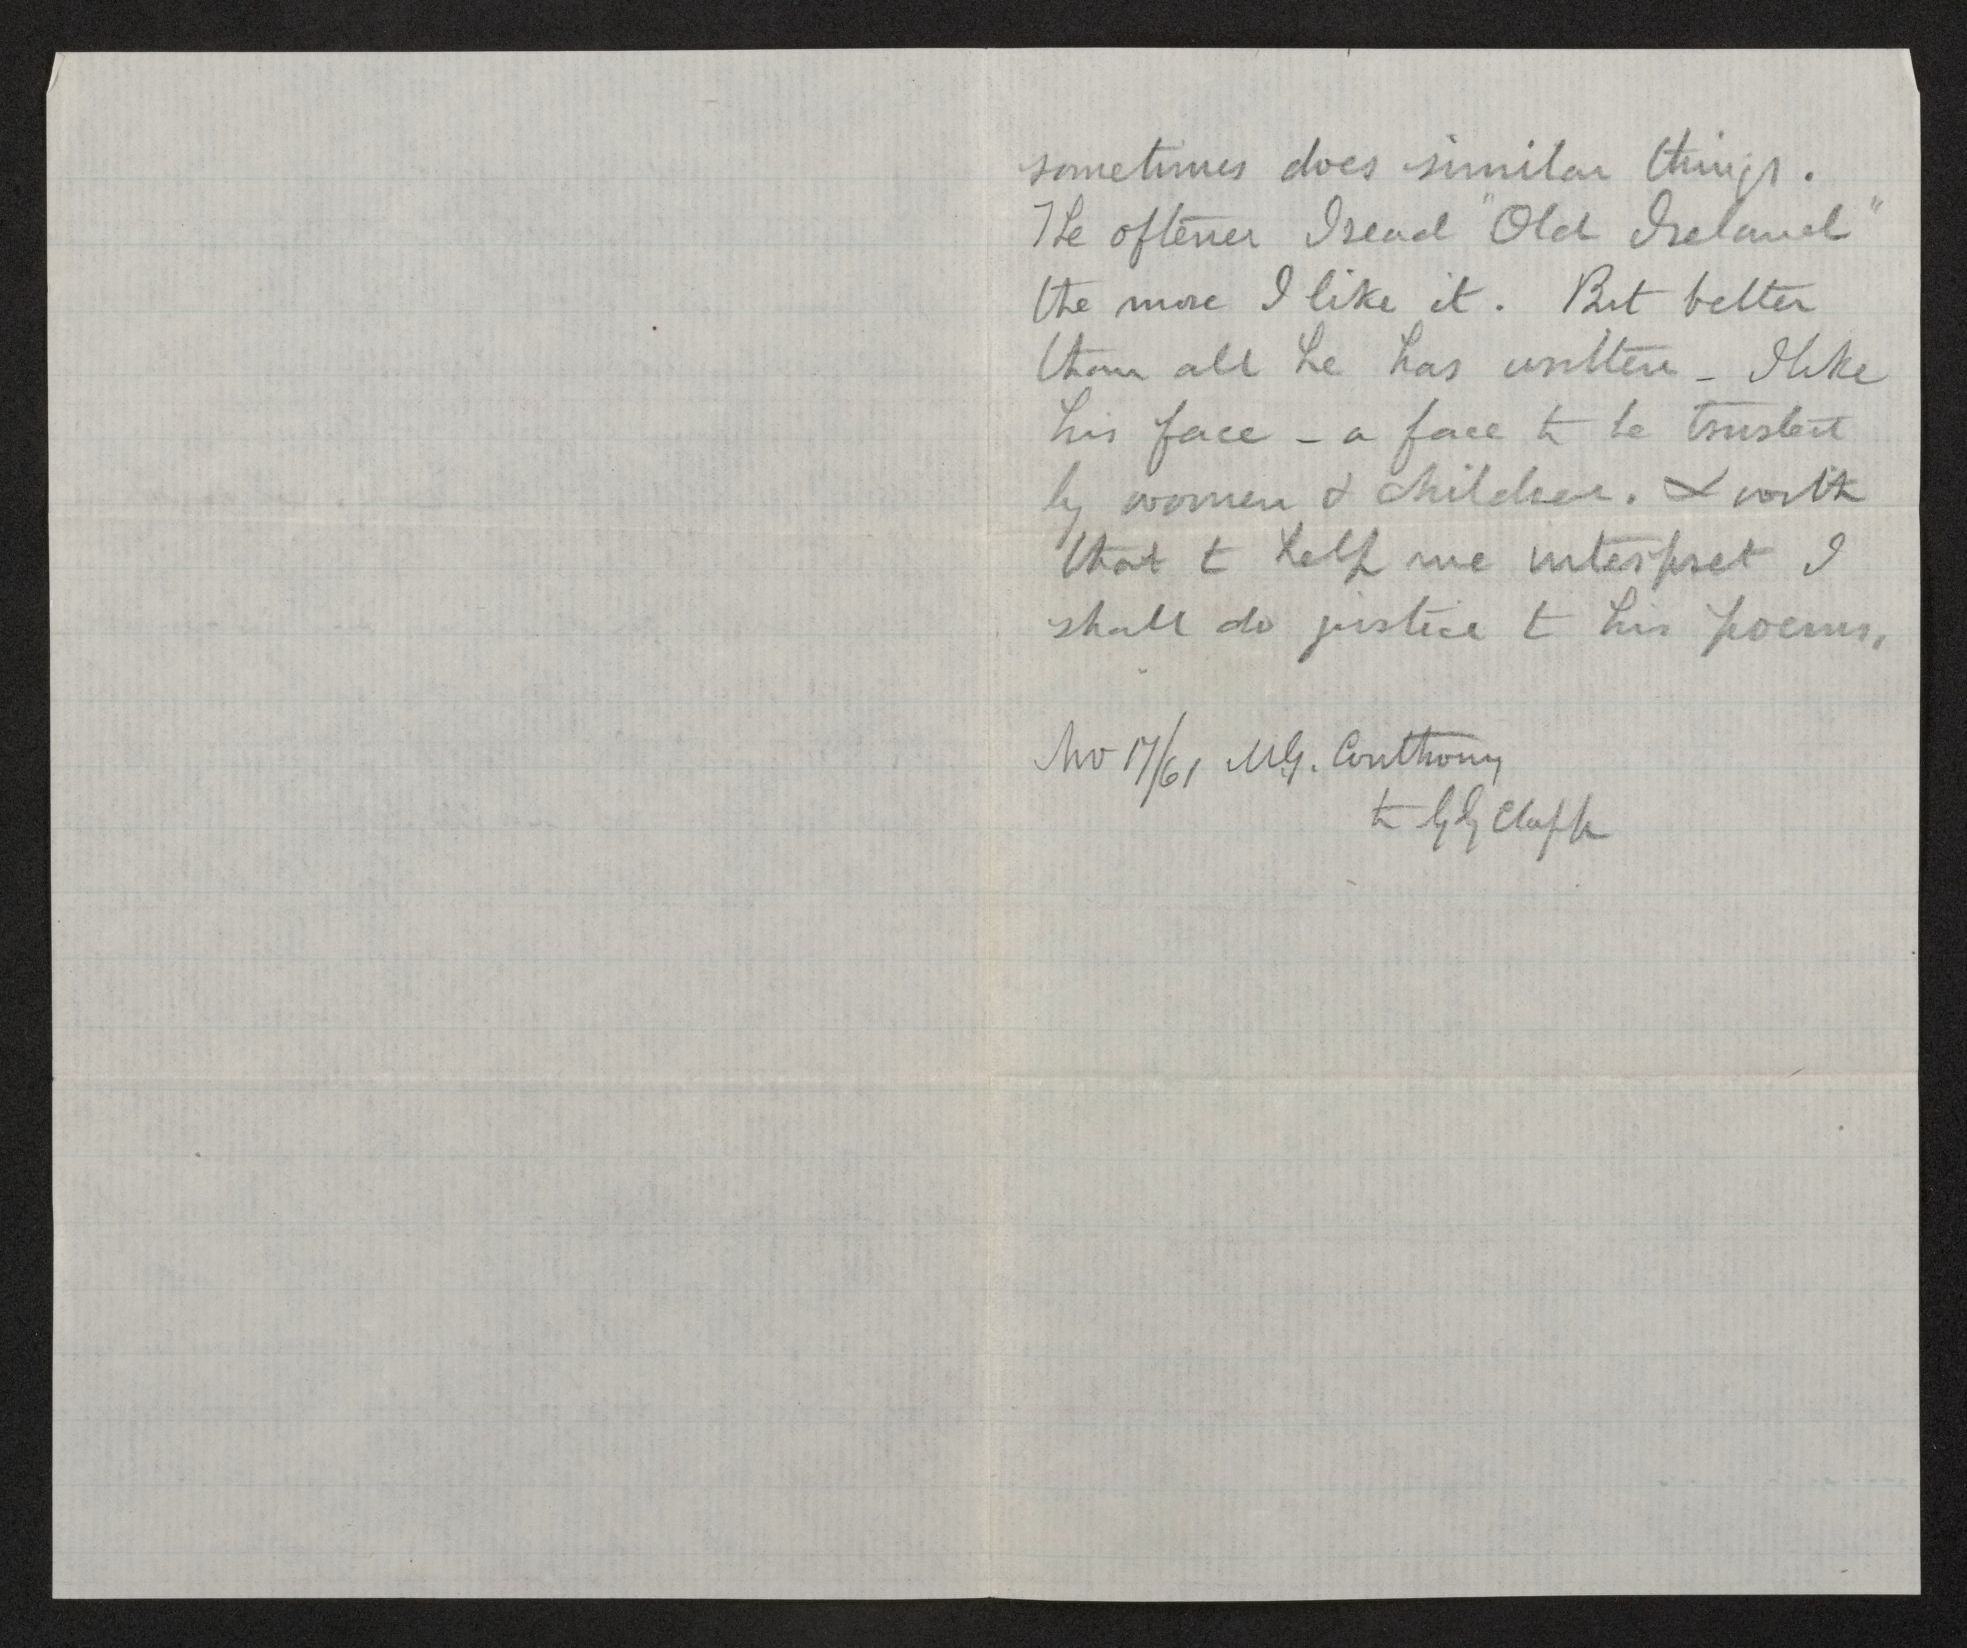 sometimes does similar things.
The oftener I read "Old Ireland"
the more I like it. But better
than all he has written _ I like
his face – a face to be trusted
by women & children. & with
that to help me interpret I
shall do justice to his poems.
Nov 17/61 M.G. Conthony
to G G Clapp